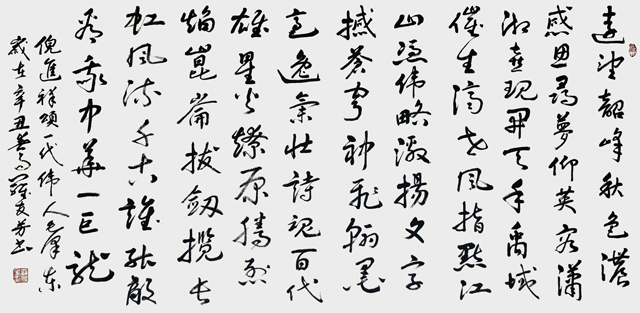 遠望韶峰秋色濃
感恩尋夢仰英容瀟
湘喜現開天手禹域
催生濟世風指點江
山憑偉略激揚文字
撼蒼穹神飛翰墨
逸氣壯詩魂百代
雄星火燎原騰烈
焰崑崙拔劍攬長
虹風流千古誰能敵
看我中華一巨龍
倪進祥頌一代偉人毛澤東
歲在辛丑 羅友芳書